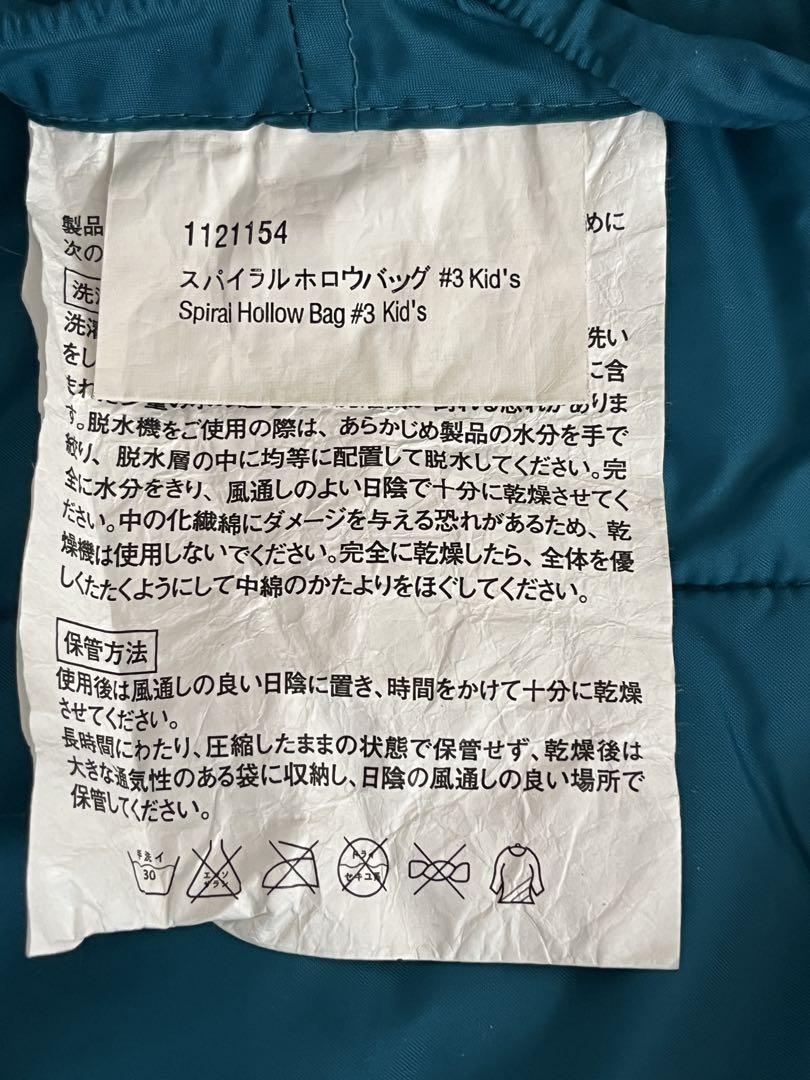 1121154
スパイラルホロウバッグ #3 Kid's
Spiral Hollow Bag #3 Kid's
製品 めに
次の
洗
洗濯 洗い
をし に含
まれ 恐れがありま
す。脱水機をご使用の際は、あらかじめ製品の水分を手で
絞り、脱水層の中に均等に配置して脱水してください。完
全に水分をきり、風通しのよい日陰で十分に乾燥させてく
ださい。中の化繊綿にダメージを与える恐れがあるため、乾
燥機は使用しないでください。完全に乾燥したら、全体を優
しくたたくようにして中綿のかたよりをほぐしてください。
保管方法
使用後は風通しの良い日陰に置き、時間をかけて十分に乾燥
させてください。
長時間にわたり、圧縮したままの状態で保管せず、乾燥後は
大きな通気性のある袋に収納し、日陰の風通しの良い場所で
保管してください。
手洗イ
30
エンソ
サラシ
ドライ
セキユ系